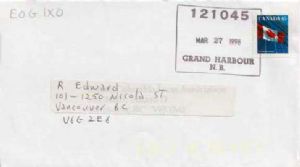 E0G 1X0
121045
MAR 27 1998
GRAND HARBOUR
N.B.
CANADA 45
R. Edward
101-1250 Nicola ST.
Vancouver BC
V6G 2E8